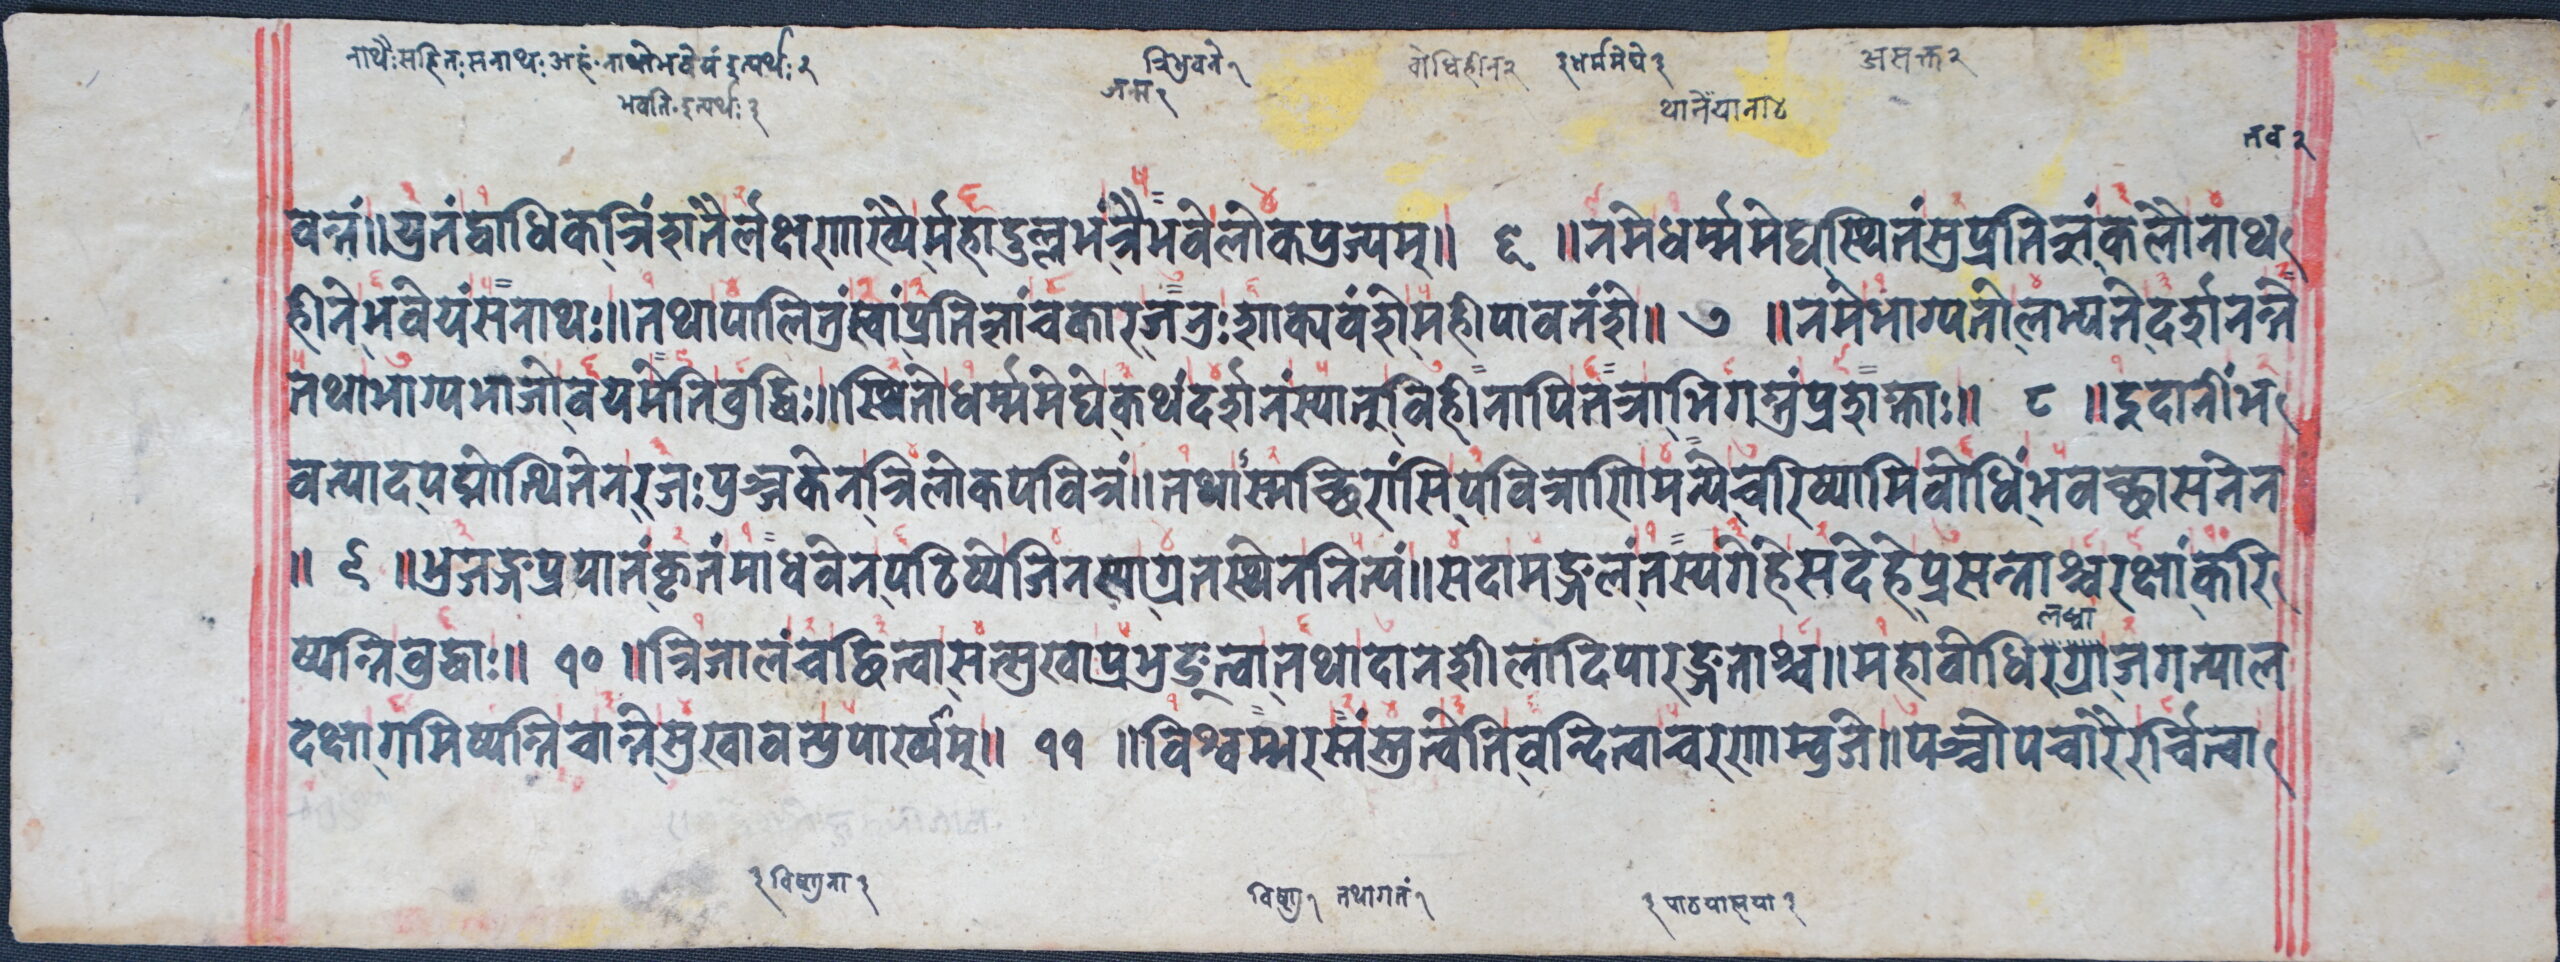 नाथैःसहितःसनाथःअहंनाथोभवेयंइत्यर्थः२
त्रिभुवने१
बोधिहीन२
३धर्ममेघे३
असक्त२
भवतिइत्यर्थः३
जन्म१
तव२
वन्तं॥युतंद्वाधिकत्रिंशतैर्लक्षणाख्यैर्महादुल्लभंत्रैभवेलोकपूज्यम्॥ ६ ॥नमेधर्म्ममेघस्थितंसुप्रतिज्ञंकलौनाथ
हीनेभवेयंसनाथः॥तथापालितुंत्वांप्रतिज्ञांचकारजनुःशाक्यवंशेमहीपावनंशे॥ ७ ॥नमेभाग्यतोलभ्यतेदर्शनन्ते
तथाभाग्यभाजोवयमेतिबुद्धिः॥स्थितोधर्म्ममेघेकथंदर्शनंस्यात्नुविहीनापितत्राभिगन्तुंप्रशक्ताः॥ ८ ॥इदानींभ
वत्पादपद्मोत्थितेनरजःपुञ्जकेनत्रिलोकपवित्रं॥तथास्मच्छिरांसिपवित्राणिमन्येचरिष्यामिबोधिंभवच्छासनेन
॥ ९ ॥भुजङ्गप्रयातंकृतंमाधवेनपठिष्येजिनस्याग्रतस्थेननित्यं॥सदामङ्गलंतस्यगेहेसदेहेप्रसन्नाश्चरक्षांकरि
लब्ध्वा
ष्यन्तिबुद्धाः॥ १० ॥त्रिजालंचछित्वासत्सुखाप्रभुङ्क्त्वातथादानशीलादिपारङ्गताश्च॥महाबोधिरग्राजगत्पाल
दक्षागमिष्यन्तिचान्तेसुखावत्युपाख्यम्॥ ११ ॥विश्वम्भरस्संस्तुत्वेतिवन्दित्वाचरणाम्बुजे॥पञ्चोपचारैरर्चित्वा
३विष्णुना३
विष्णु१ तथागतं१